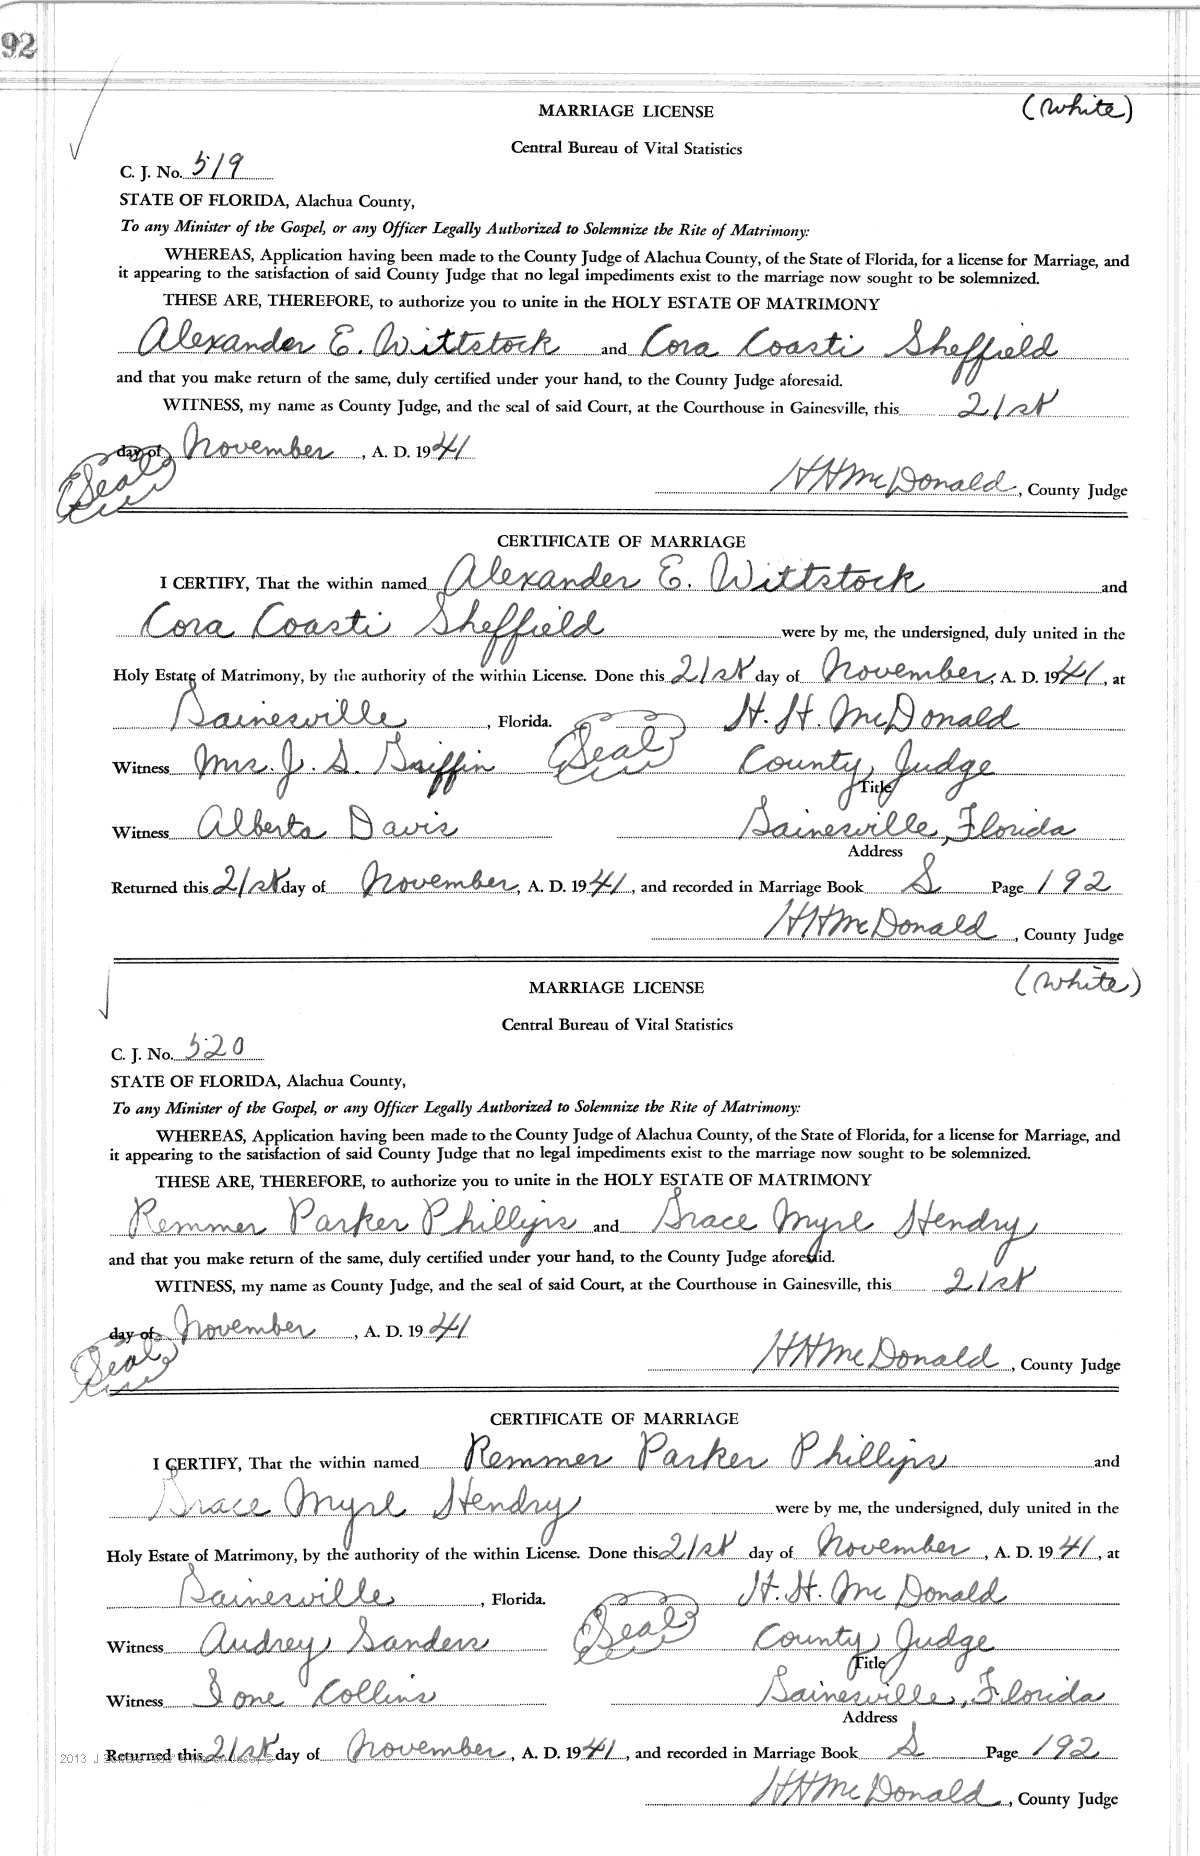 92
MARRIAGE LICENSE (White)
Central Bureau of Vital Statistics
C. J. No. 519
STATE OF FLORIDA, Alachua County,
To any Minister of the Gospel, or any Officer Legally Authorized to Solemnize the Rite of Matrimony:
WHEREAS, Application having been made to the County Judge of Alachua County, of the State of Florida, for a license for Marriage, and
it appearing to the satisfaction of said County Judge that no legal impediments exist to the marriage now sought to be solemnized.
THESE ARE, THEREFORE, to authorize you to unite in the HOLY ESTATE OF MATRIMONY
Alexander E. Wittstock and Cora Coasti Sheffield
and that you make return of the same, duly certified under your hand, to the County Judge aforesaid.
WITNESS, my name as County Judge, and the seal of said Court, at the Courthouse in Gainesville, this 21st
day of November, A. D. 1941
(Seal) HHMcDonald, County Judge
CERTIFICATE OF MARRIAGE
I CERTIFY, That the within named Alexander E. Wittstock and
Cora Coasti Sheffield were by me, the undersigned, duly united in the
Holy Estate of Matrimony, by the authority of the within License. Done this 21st day of November, A. D. 1941, at
Gainesville, Florida. H. H. McDonald
Witness Mrs. J. S. Griffin (Seal) County Judge
Title
Witness Alberta Davis Gainesville, Florida
Address
Returned this 21st day of November, A. D. 1941, and recorded in Marriage Book S Page 192
HHMcDonald, County Judge
MARRIAGE LICENSE (White)
Central Bureau of Vital Statistics
C. J. No. 520
STATE OF FLORIDA, Alachua County,
To any Minister of the Gospel, or any Officer Legally Authorized to Solemnize the Rite of Matrimony:
WHEREAS, Application having been made to the County Judge of Alachua County, of the State of Florida, for a license for Marriage, and
it appearing to the satisfaction of said County Judge that no legal impediments exist to the marriage now sought to be solemnized.
THESE ARE, THEREFORE, to authorize you to unite in the HOLY ESTATE OF MATRIMONY
Remmer Parker Phillips and Grace Myrl Hendry
and that you make return of the same, duly certified under your hand, to the County Judge aforesaid.
WITNESS, my name as County Judge, and the seal of said Court, at the Courthouse in Gainesville, this 21st
day of November, A. D. 1941
(Seal) HHMcDonald, County Judge
CERTIFICATE OF MARRIAGE
I CERTIFY, That the within named Remmer Parker Phillips and
Grace Myrl Hendry were by me, the undersigned, duly united in the
Holy Estate of Matrimony, by the authority of the within License. Done this 21st day of November, A. D. 1941, at
Gainesville, Florida. H. H. McDonald
Witness Audrey Sanders (Seal) County Judge
Title
Witness Ione Collins Gainesville, Florida
Address
2013
Returned this 21st day of November, A. D. 1941, and recorded in Marriage Book S Page 192
HHMcDonald, County Judge